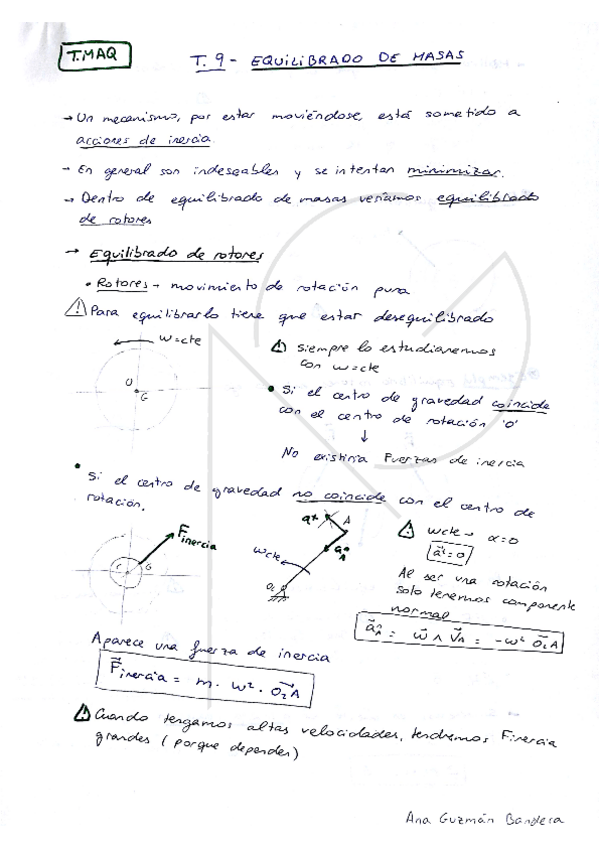 T.MAQ
T.9- EQUILIBRADO DE MASAS
→ Un mecanismo, por estar moviéndose, está sometido a
acciones de inercia.
→ En general son indeseables y se intentan minimizar.
→ Dentro de equilibrado de masas veríamos equilibrado
de rotores
→ Equilibrado de rotores
• Rotores → movimiento de rotación pura
⚠ Para equilibrarlo tiene que estar desequilibrado
w=cte
O
G
⚠ Siempre lo estudiaremos
con w=cte
• Si el centro de gravedad coincide
con el centro de rotación 'O'
↓
No existiría Fuerzas de inercia
• Si el centro de gravedad no coincide con el centro de
rotación.
Finercia
G
wcte
A
⚠ wcte → α=0
aᵗ=0
Al ser una rotación
solo tenemos componente
normal
= w ∧ = -w² O₂A
Aparece una fuerza de inercia
Finercia = m · w² · O₂A
⚠ Cuando tengamos altas velocidades, tendremos Finercia
grandes (porque depender)
Ana Guzmán Bandera